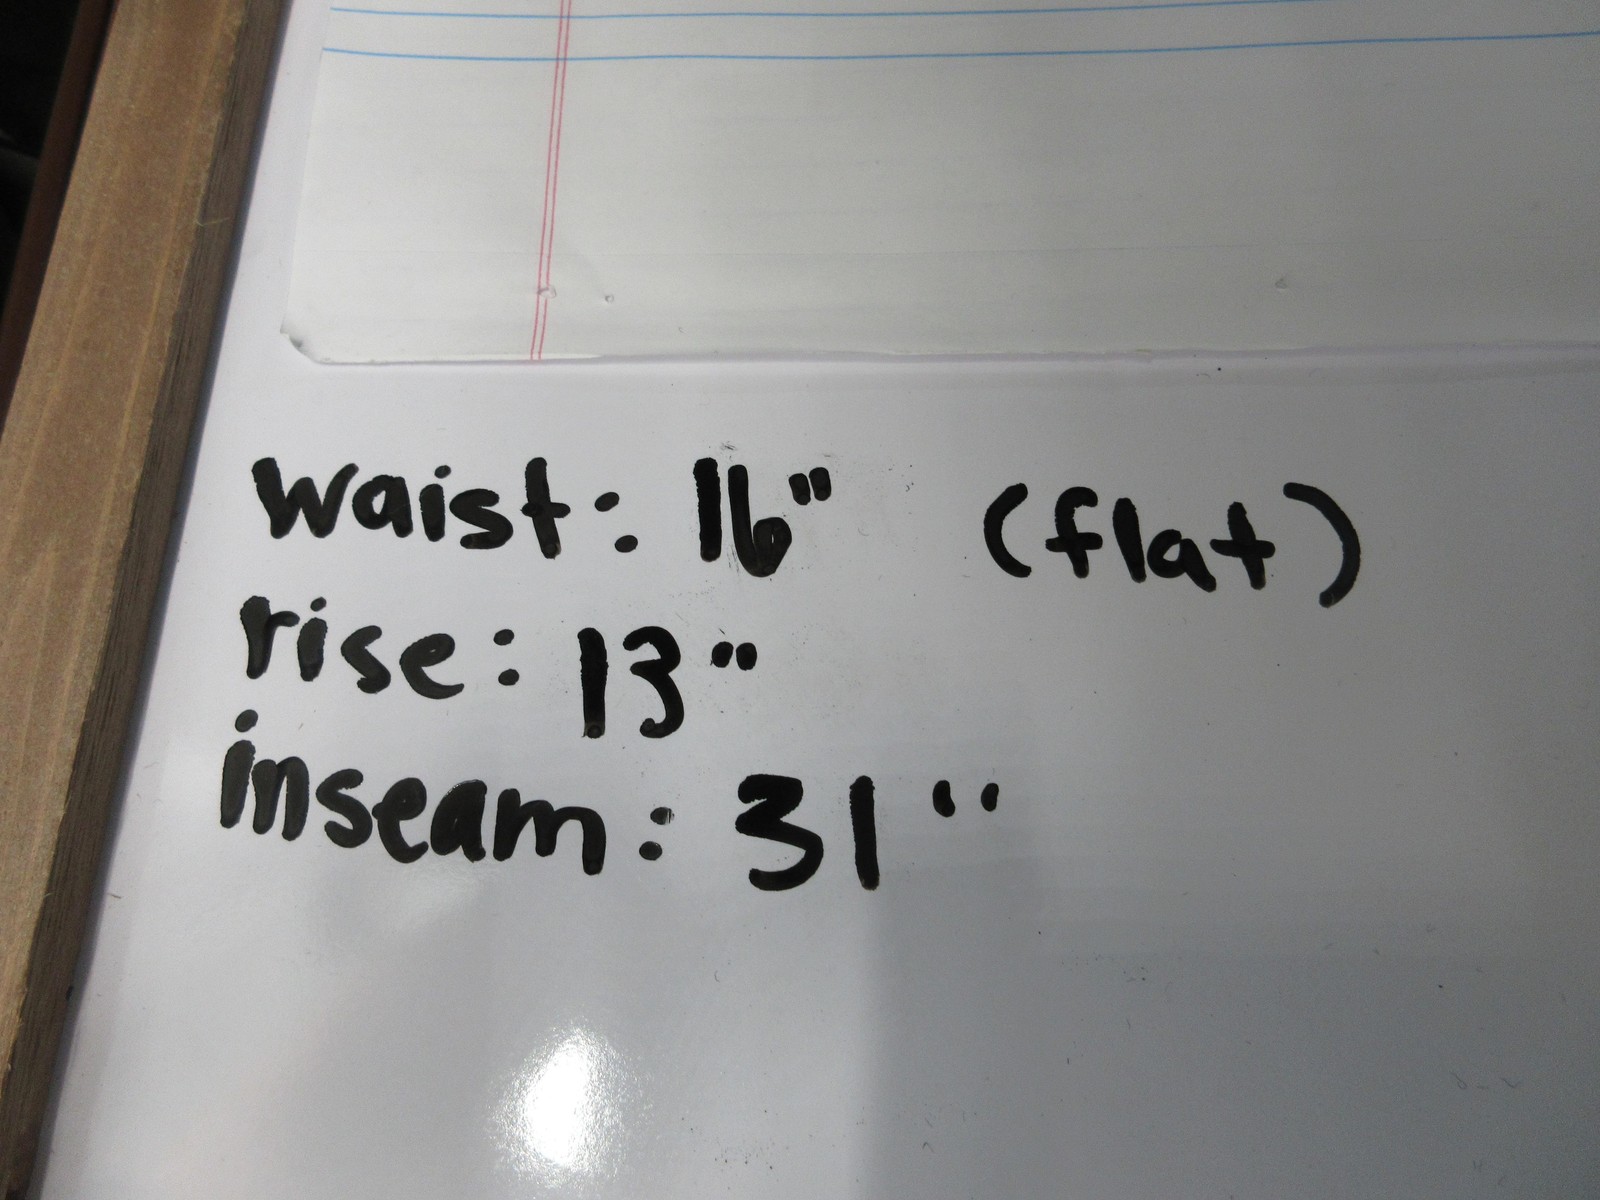 waist: 16" (flat)
rise: 13"
inseam: 31"